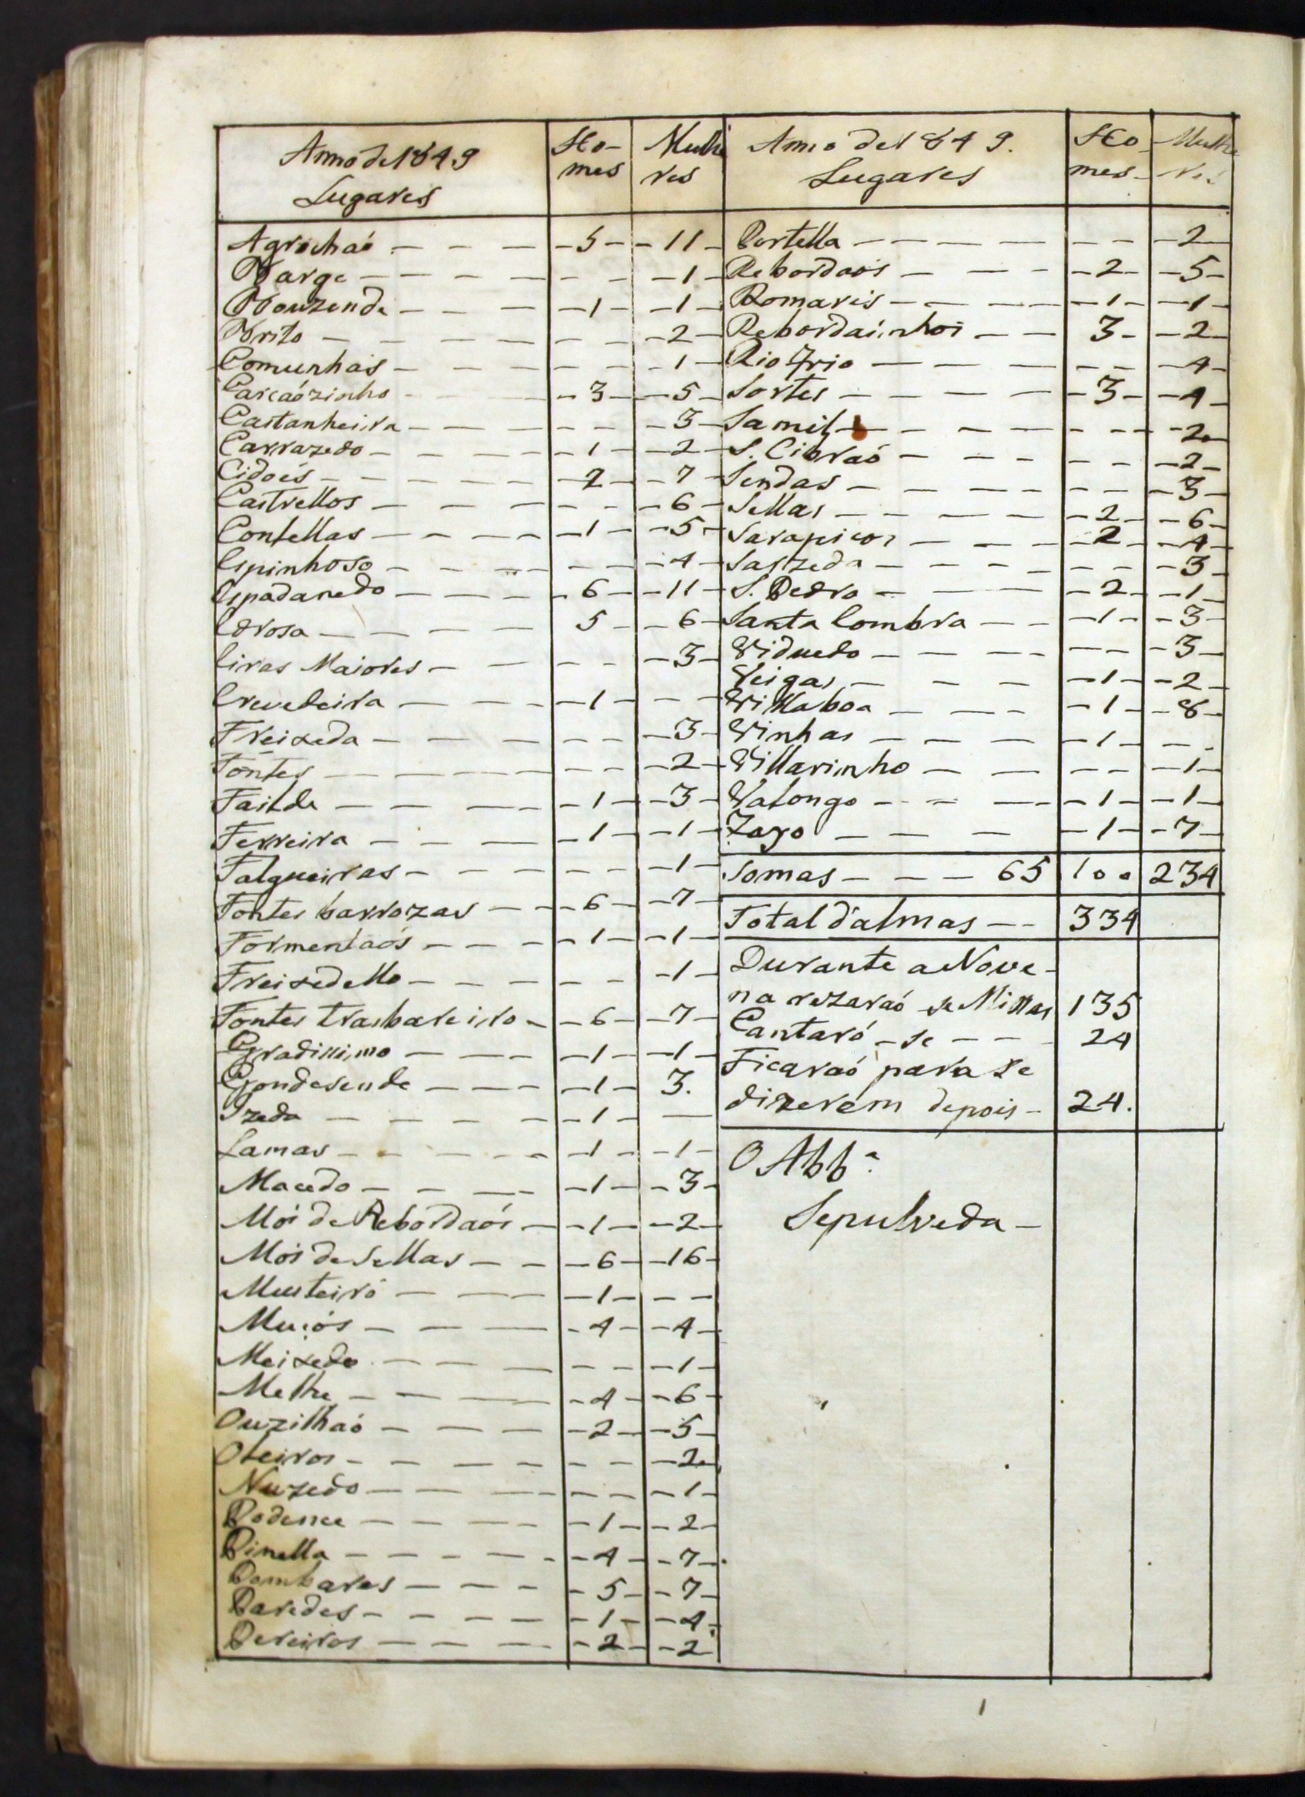 Anno de 1849
Lugares
Ho-
mes
Mulhe
res
Agrochaó - 5 - 11
Barge - 1
Bouzende - 1 - 1
Brito - 2
Comunhas - 1
Carcaózinho - 3 - 5
Castanheira - 3
Carrazedo - 1 - 2
Cidoés - 2 - 7
Castrellos - 6
Contellas - 1 - 5
Espinhoso - 4
Espadanedo - 6 - 11
Edrosa - 5 - 6
Eiras Maiores - 3
Ervedeira - 1 -
Freixeda - 3
Fontes - 2
Failde - 1 - 3
Ferreira - 1 - 1
Falgueiras - 1
Fontes barrozas - 6 - 7
Formentaós - 1 - 1
Freixedello - 1
Fontes trasbaceiro - 6 - 7
Gradissimo - 1 - 1
Gondesende - 1 3.
Izeda - 1 -
Lamas - 1 - 1
Macedo - 1 - 3
Mós de Rebordaós - 1 - 2
Mós de Sellas - 6 - 16
Musteiró - 1 -
Muçós - 4 - 4
Meixedo - 1
Melhe - 4 - 6
Ouzilhaó - 2 - 5
Oteiros - 2
Nuzedo - 1
Podence - 1 - 2
Pinella - 4 - 7
Pombares - 5 - 7
Paredes - 1 - 4
Pereiros - 2 - 2
Anno de 1849.
Lugares
Ho-
mes
Mulhe
res
Portella - 2
Rebordaós - 2 - 5
Romaris - 1 - 1
Rebordaínhos - 3 - 2
Rio frio - 4
Sortes - 3 - 4
Samil - 2
S. Cibraó - 2
Sendas - 3
Sellas - 2 - 6
Sarapicos - 2 - 4
Sarzeda - 3
S. Pedro - 2 - 1
Santa Combra - 1 - 3
Viduedo - 3
Veigas - 1 - 2
Villaboa - 1 - 8
Vinhas - 1 -
Villarinho - 1
Valongo - 1 - 1
Zayo - 1 - 7
Somas - 65 100 234
Total d'almas - 334
Durante a Nove-
na rezaraó se Missas 135
Cantaró-se - 24
Ficaraó para se
dizerem depois - 24.
O Abb.e
Sepulveda -